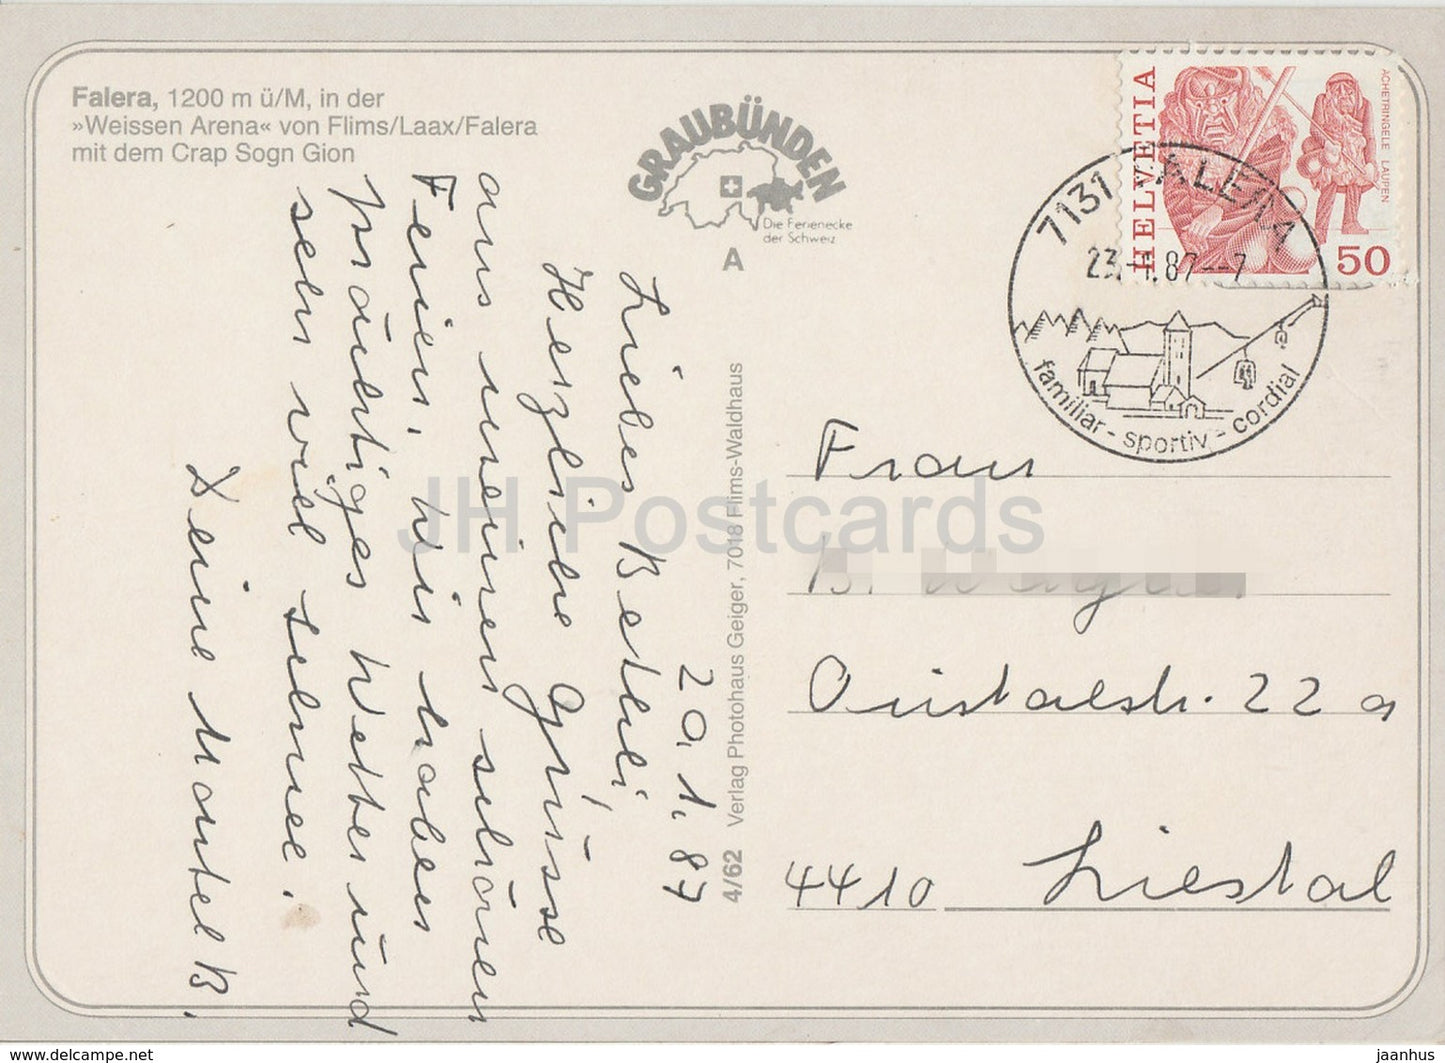 Falera, 1200 m ü/M, in der
»Weissen Arena« von Flims/Laax/Falera
mit dem Crap Sogn Gion
GRAUBÜNDEN
Die Ferienecke
der Schweiz
A
HELVETIA
ACHETRINGELE LAUPEN
50
7131 FALERA
23.-1.87--7
familiar - sportiv - cordial
4/62 Verlag Photohaus Geiger, 7018 Flims-Waldhaus
20.1.87
Liebes Bethli,
Herzliche Grüsse
aus meinen schönen
Ferien. Wir haben
prächtiges Wetter und
sehr viel Schnee.
Deine Mantel B.
Frau
B.
Oristalstr. 22 a
4410 Liestal
JH Postcards
www.delcampe.net
jaanhus